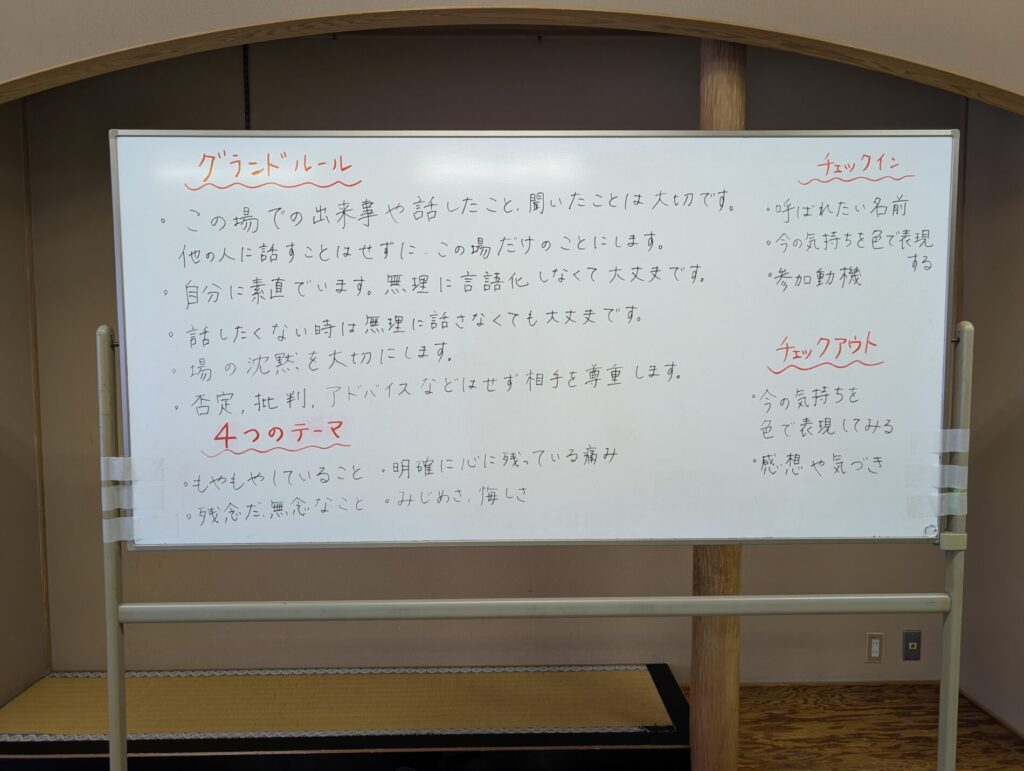 グランドルール
・この場での出来事や話したこと、聞いたことは大切です。
他の人に話すことはせずに、この場だけのことにします。
・自分に素直でいます。無理に言語化しなくて大丈夫です。
・話したくない時は無理に話さなくても大丈夫です。
・場の沈黙を大切にします。
・否定、批判、アドバイスなどはせず相手を尊重します。
4つのテーマ
・もやもやしていること ・明確に心に残っている痛み
・残念だ、無念なこと ・みじめさ、悔しさ
チェックイン
・呼ばれたい名前
・今の気持ちを色で表現
する
・参加動機
チェックアウト
・今の気持ちを
色で表現してみる
・感想や気づき